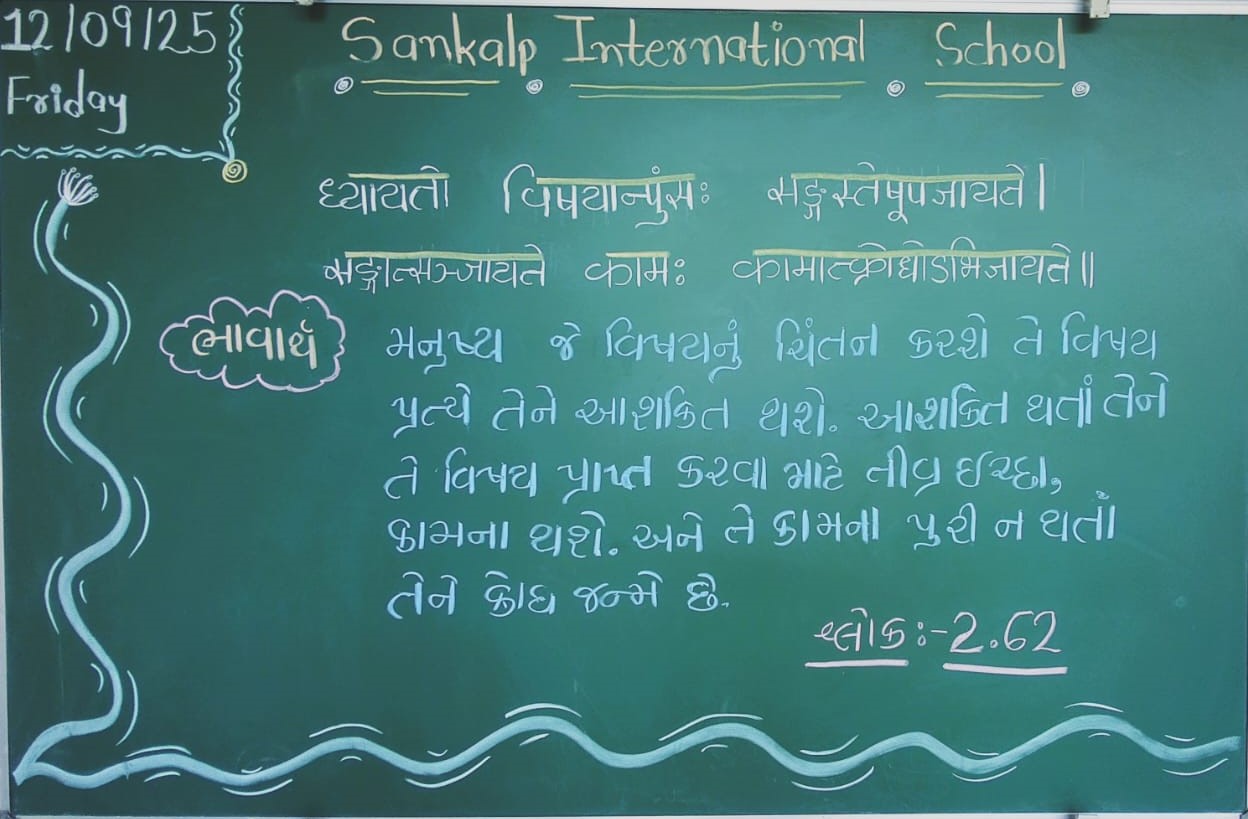 12/09/25
Friday
Sankalp International School
ध्यायतो विषयान्पुंसः सङ्गस्तेषूपजायते।
सङ्गात्सञ्जायते कामः कामात्क्रोधोऽभिजायते॥
ભાવાર્થ
મનુષ્ય જે વિષયનું ચિંતન કરશે તે વિષય
પ્રત્યે તેને આશકિત થશે. આશકિત થતાં તેને
તે વિષય પ્રાપ્ત કરવા માટે તીવ્ર ઈચ્છા,
કામના થશે. અને તે કામના પુરી ન થતાઁ
તેને ક્રોધ જન્મે છે.
શ્લોક:-2.62